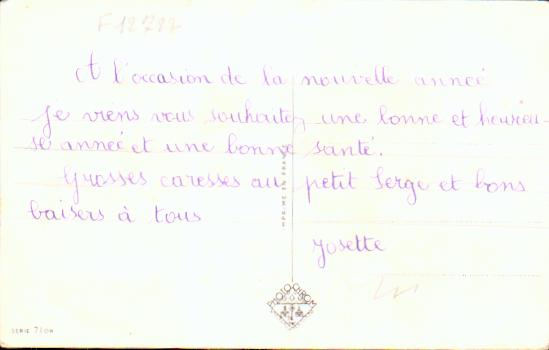 F 12727
A l'occasion de la nouvelle année
je viens vous souhaiter une bonne et heureu-
se année et une bonne santé.
Grosses caresses au petit Serge et bons
baisers à tous
Josette
IMPRIMÉ EN FRANCE
PHOTO-GIROM
SERIE 710H